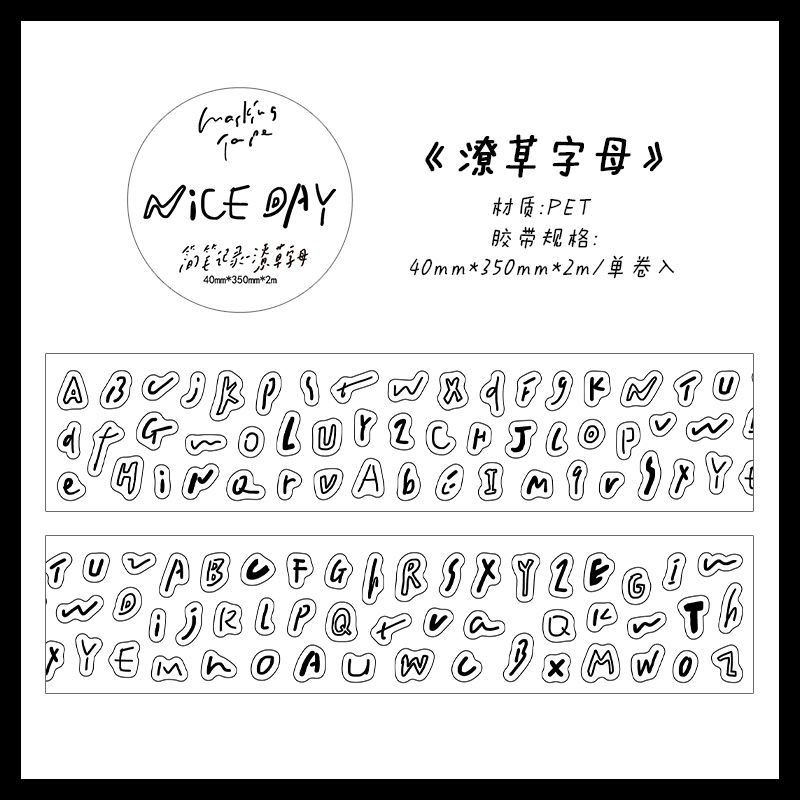 masking
tape
NiCE DAY
简笔记录-潦草字母
40mm*350mm*2m
《潦草字母》
材质:PET
胶带规格:
40mm*350mm*2m/单卷入
A B c j k p s t w X d F g K N T U
d f G m o L U Y 2 C H J l O p v w
e H i N a r v A b i I m q r s X Y E
T U v A B C F G h R S X Y Z E G i n
w D i j K L P Q t v a Q K n T h
X Y E m n O A U W c B x M W o Z